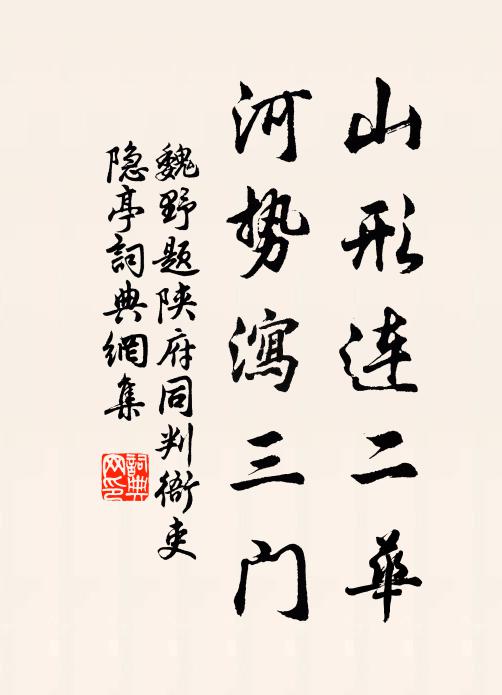 山形连二華
河势瀉三门
魏野题陕府同判衙吏
隐亭詞典網集
詞典网印